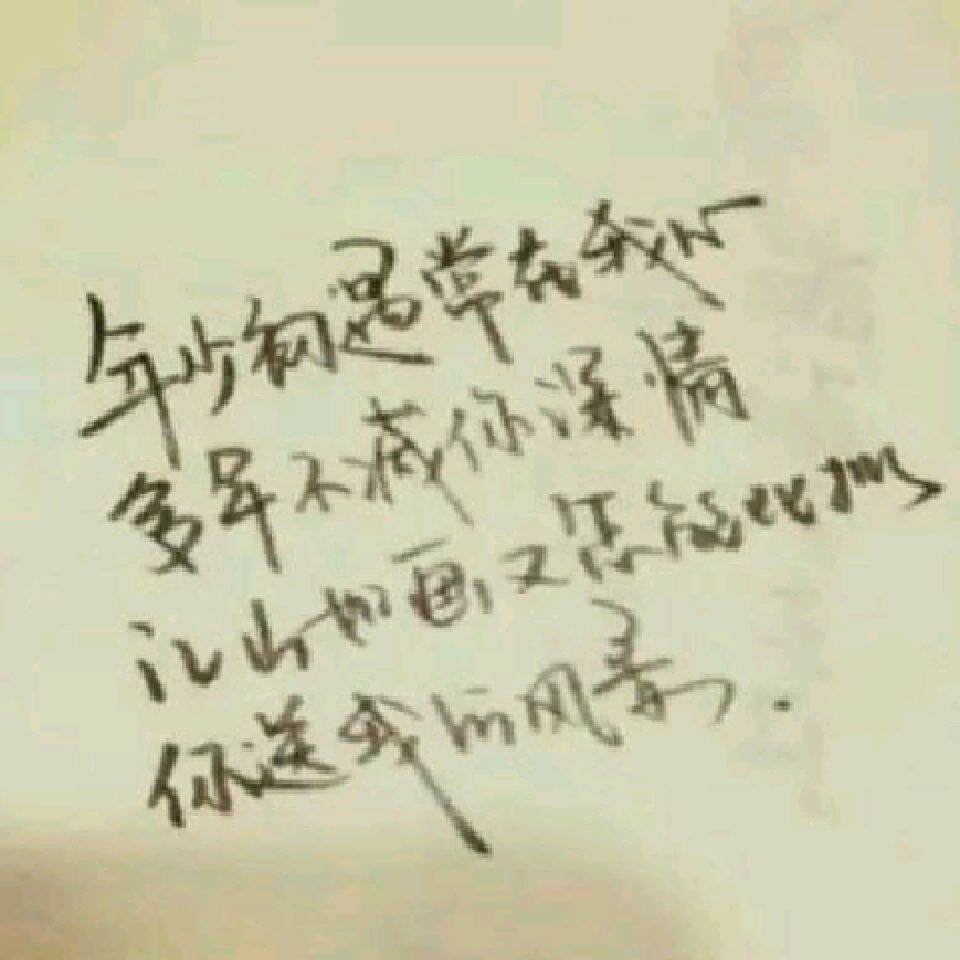 年少初遇常在我心
多年不减你深情
江山如画又怎能比拟
你送我的风景.